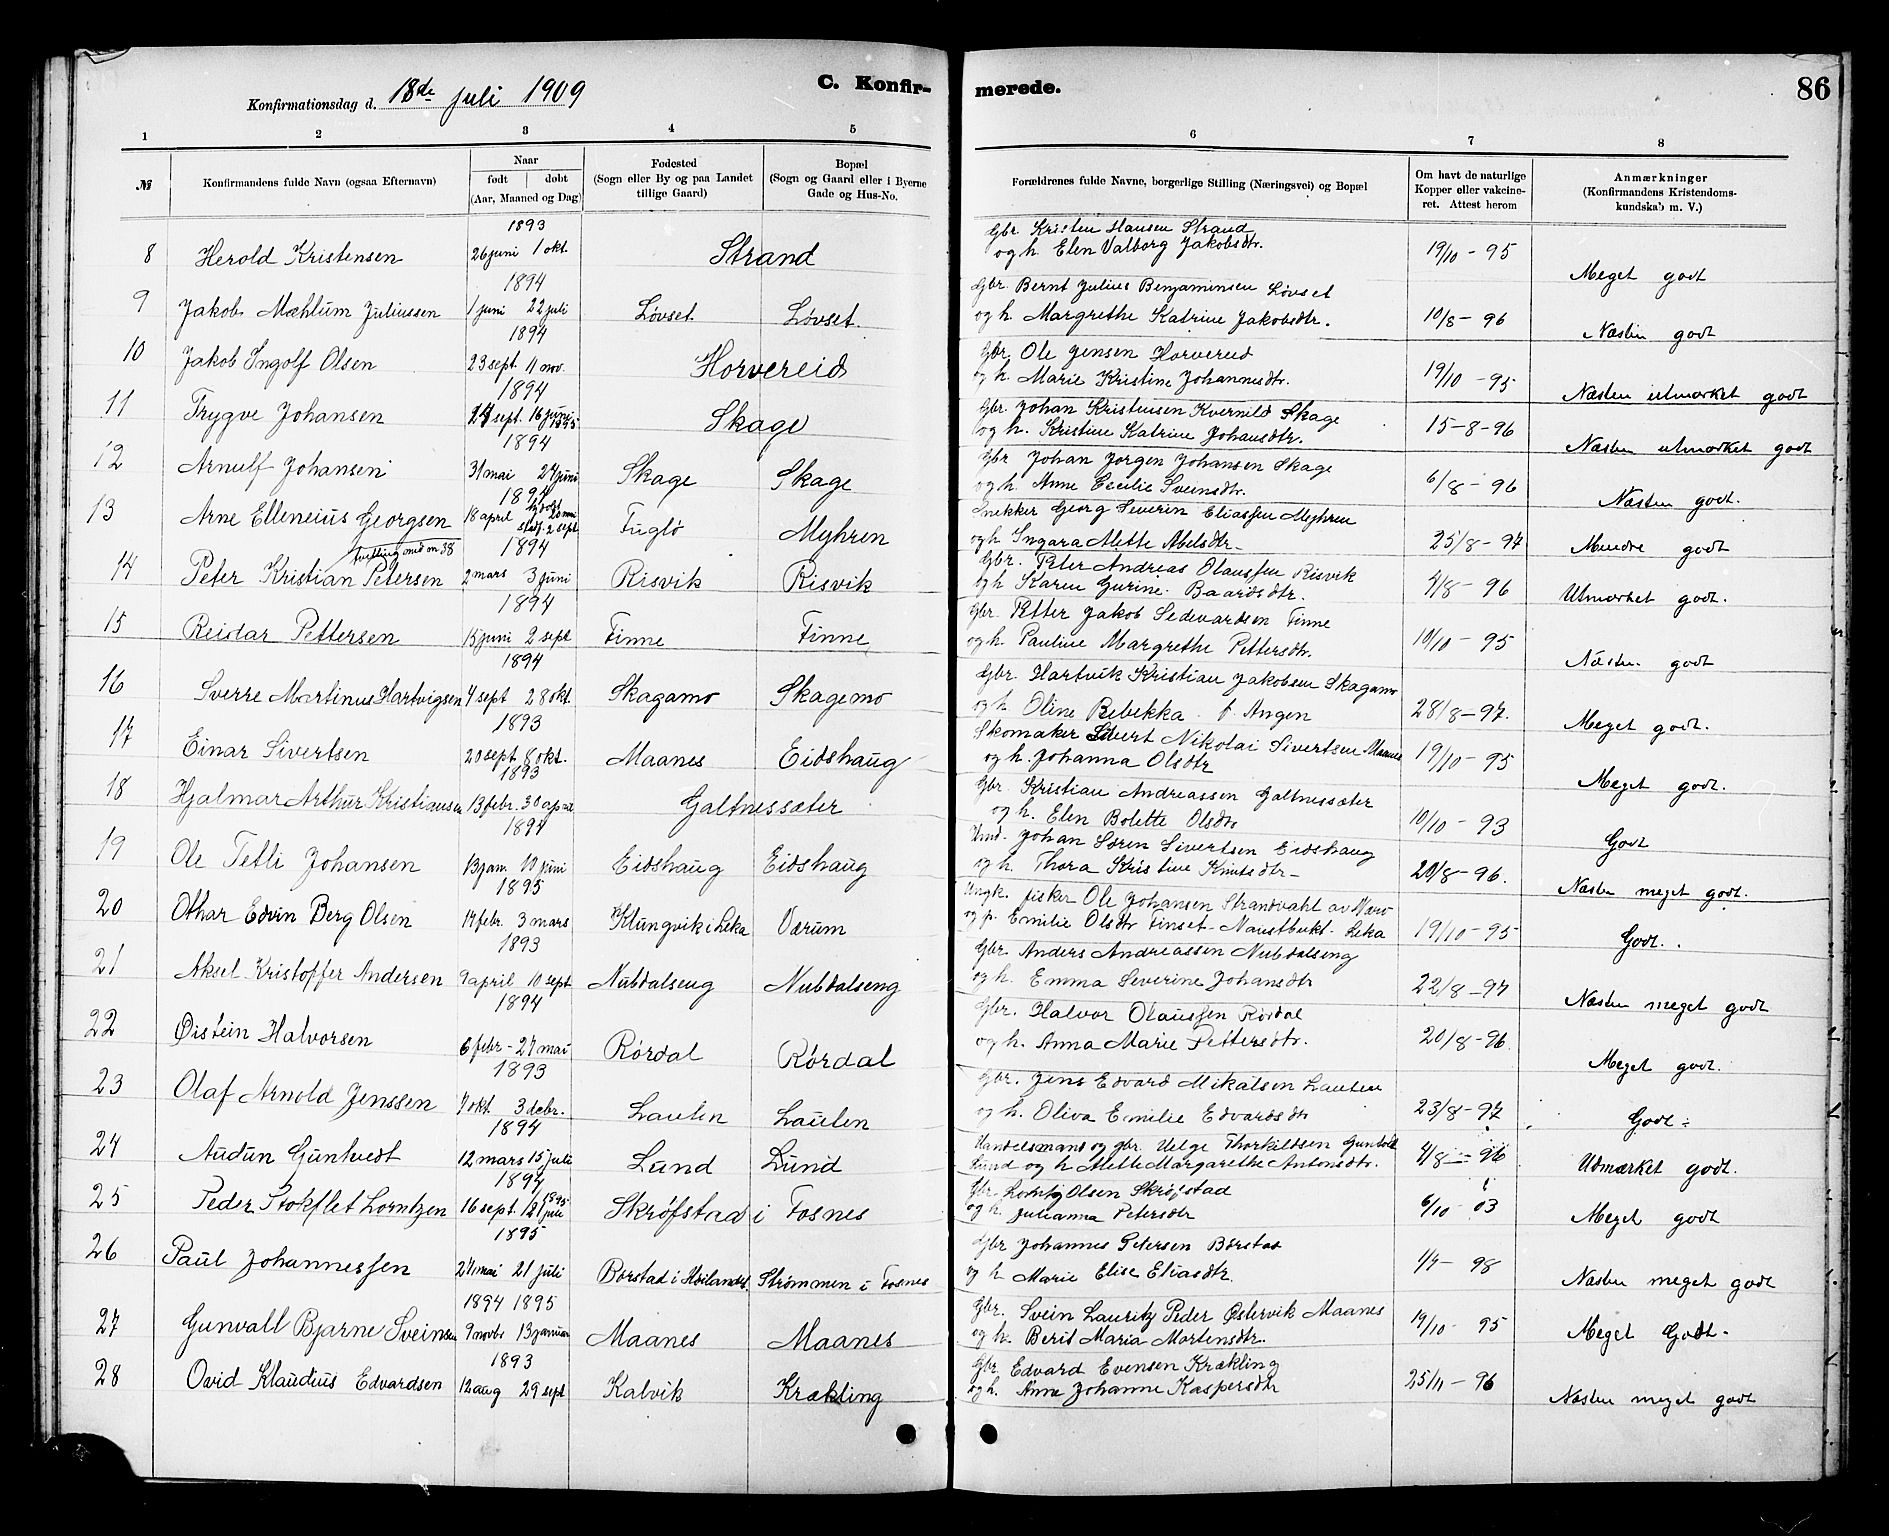 Konfirmationsdag d. 18de juli 1909
C. Konfir-
merede.
86
1 2 3 4 5 6 7 8
№
Konfirmandens fulde Navn (ogsaa Efternavn)
Naar
født døbt
(Aar, Maaned og Dag)
Fødested
(Sogn eller By og paa Landet
tillige Gaard)
Bopæl
(Sogn og Gaard eller i Byerne
Gade og Hus-No.
Forældrenes fulde Navne, borgerlige Stilling (Næringsvei) og Bopæl
Om havt de naturlige
Kopper eller vakcine-
ret. Attest herom
Anmærkninger
(Konfirmandens Kristendoms-
kundskab m. V.)
1893
8 Herold Kristensen 26 juni 1 okt. Strand
Gbr Kristen Hansen Strand
og h. Elen Valborg Jakobsdtr. 19/10 - 95 Meget godt
1894
9 Jakob Mæhlum Juliussen 1 juni 22 juli Løvset Løvset
Gbr. Bernt Julius Benjaminsen Løvset
og h. Margrethe Katrine Jakobsdtr. 10/8 - 96 Næsten godt
1894
10 Jakob Ingolf Olsen 23 sept. 11 nov. Horvereid
Gbr. Ole Jensen Horvereid
og h. Marie Kristine Johannesdtr. 19/10 - 95 Næsten utmærket godt
1894
11 Trygve Johansen 24 sept. 16 juni 1895 Skage
Gbr. Johan Kristensen Kverneld Skage
og h. Kristine Katrine Johansdtr. 15-8-96 Næsten utmærket godt
1894
12 Arnulf Johansen 31 mai 24 juni Skage Skage
Gbr Johan Jørgen Johansen Skage
og h. Anne Cecilie Sveinsdtr. 6/8 - 96 Næsten godt.
1894
13 Arne Elleneius Georgsen 18 april 2 sept Fuglø Myhren
tvilling med no 38
Snekker Georg Severin Eliassen Myhren
og h Ingara Mette Abelsdtr. 25/8 - 97 Mindre godt
1894
14 Peter Kristian Petersen 2 mars 3 juni Risvik Risvik
Gbr. Peter Andreas Olaussen Risvik
og h Karen Gurine Baardsdtr. 4/8 - 96 Utmærket godt.
1894
15 Reidar Pettersen 15 juni 2 sept Finne Finne
Gbr. Petter Jakob Sedevardsen Finne
og h. Pauline Margrethe Pettersdtr. 10/10 - 95 Næsten godt
1894
16 Sverre Martinus Hartvigsen 4 sept 28 okt. Skagamo Skagemo
Gbr. Hartvik Kristian Jakobsen Skagamo
og h. Oline Rebekka f. Angen 28/8 - 97. Meget godt.
1893
17 Einar Sivertsen 20 sept. 8 okt. Maanes Eidshaug
Skomaker Sivert Nikolai Sivertsen Maanes
og h. Johanna Olsdtr 19/10 - 95 Meget godt.
1893
18 Hjalmar Arthur Kristiansen 13 febr. 30 april Galtnessæter
Gbr. Kristian Andreassen Galtnessæter
og h. Elen Bolette Olsdtr 10/10 - 93 Godt
1894
19 Ole Tetli Johansen 13 jan. 17 juni Eidshaug Eidshaug
Johan Søren Sivertsen Eidshaug
og h. Thora Kristine Knutsdtr 20/8 - 96. Næsten meget godt.
1895
20 Othar Edvin Berg Olsen 14 febr. 3 mars Klungvik i Leka Værum
Ungk. fisker Ole Johansen Strandvahl av Nærø
og p. Emilie Olsdtr Finset - Naustbukt - Leka 19/10 - 95 Godt.
1893
21 Aksel Kristoffer Andersen 9 april 10 sept Nubdalseng Nubdalseng
Gbr. Anders Andreassen Nubdalseng
og h. Emma Severine Johansdtr 22/8 - 97 Næsten meget godt
1894
22 Øistein Halvorsen 6 febr - 27 mai Rørdal Rørdal
Gbr. Halvor Olaussen Rørdal
og h. Anna Marie Pettersdtr. 20/8 - 96. Meget godt.
1893
23 Olaf Arnold Jenssen 7 okt. 3 debr. Laulen Laulen
Gbr. Jens Edvard Mikalsen Laulen
og h. Oliva Emilie Edvardsdtr 23/8 - 97 Godt
1894
24 Audun Gunhvedt 12 mars 15 juli Lund Lund
Handelsmand og gbr. Helge Thorkildsen
Lund og h Mette Margarethe Antonsdtr. 4/8 - 96 Udmærket godt.
1894
25 Peder Stokflet Lorntzen 16 sept. 1895 Skrøfstad i Fosnes
Gbr. Lorntz Olsen Skrøfstad
og h. Julianna Petersdtr 6/10 - 03 Meget godt
1895
26 Paul Johannessen 27 mai 21 juli Borstad i Høilandet. Strømmen i Fosnes
Gbr Johannes Petersen Børstad
og h Marie Elise Eliasdtr. 1/7 - 98 Næsten meget godt
1894 1895
27 Gunvall Bjarne Sveinsen 9 novbr 13 januar Maanes Maanes
Gbr. Svein Lauritz Peder Østervik Maanes
og h. Berit Maria Mortensdtr. 19/10 - 95 Meget Godt.
1893
28 Ovid Klaudius Edvardsen 12 aug 29 sept Kalvik Krækling
Gbr Edvard Evensen Krækling
og h. Anne Johanne Kaspersdtr 25/11 - 96 Næsten meget godt